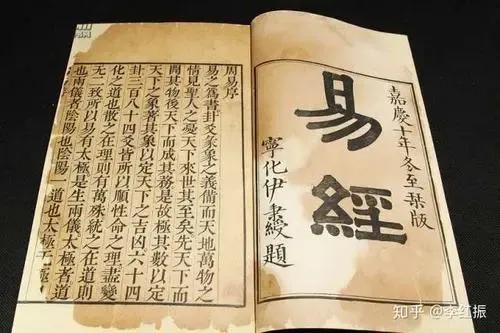 嘉慶十年冬至栞版
易經
寧化伊秉綬題
周易序
易之爲書卦爻彖象之義備而天地萬物之
情見聖人之憂天下來世其至矣先天下而
開其物後天下而成其務是故極其數以定
天下之象著其象以定天下之吉凶六十四
卦三百八十四爻皆所以順性命之理盡變
化之道也散之在理則有萬殊統之在道則
无二致所以易有太極是生兩儀太極者道
也兩儀者陰陽也陰陽一道也太極无極
知乎 @李红振